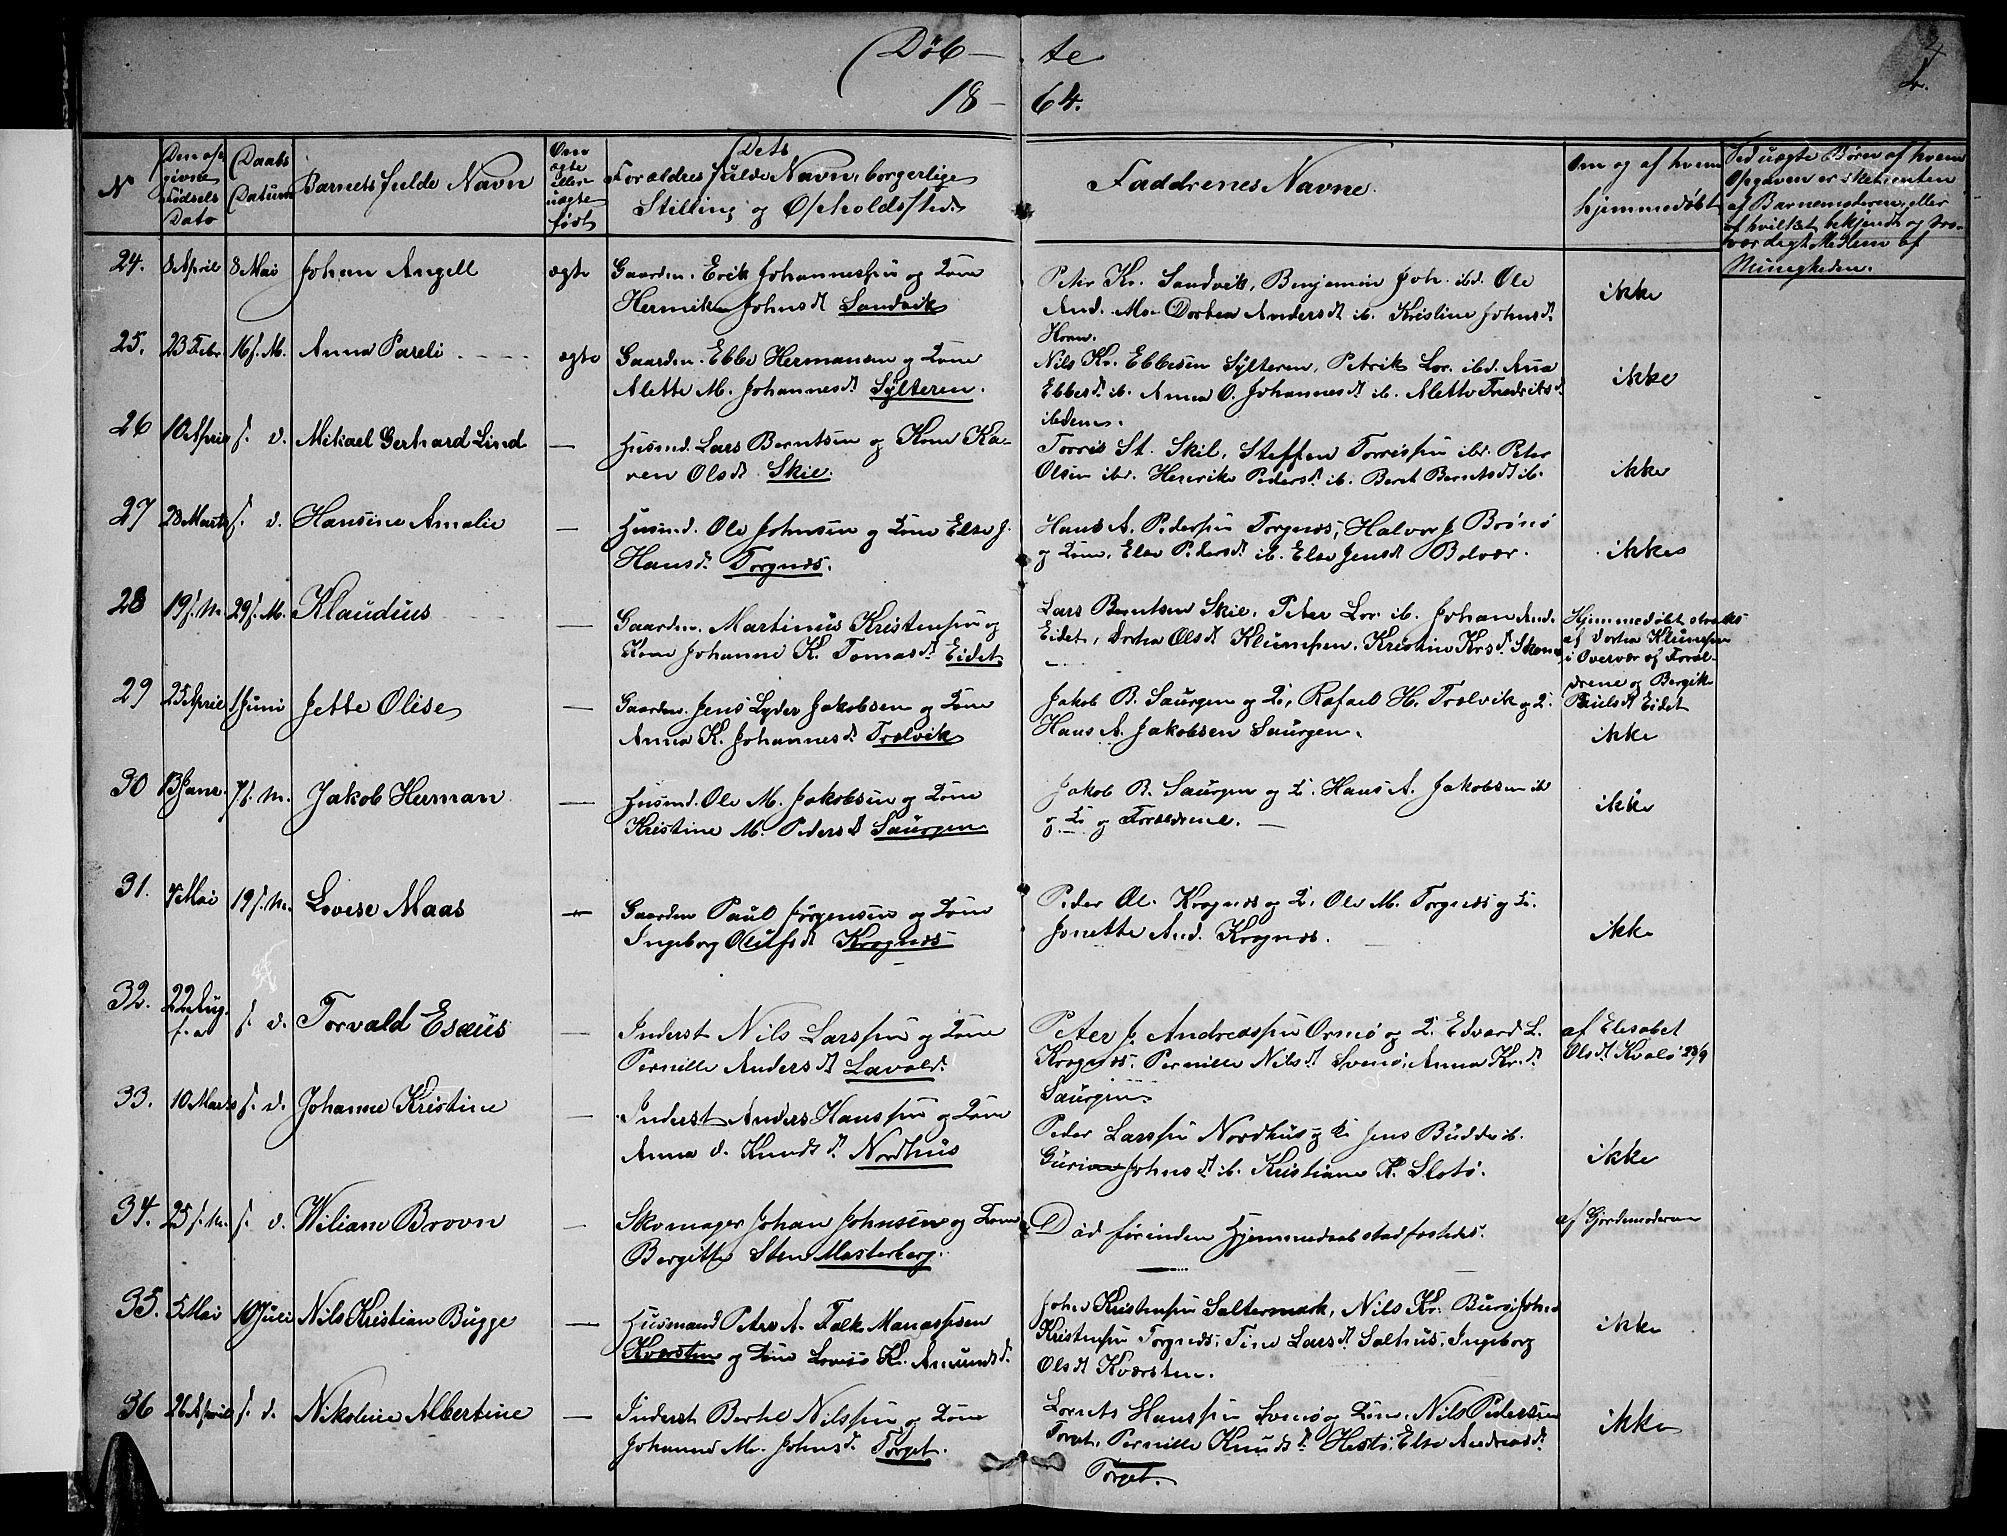 Døb — te
18 — 64.
N
Den op-
givne
Fødsels
Dato
Daabs
Datum
Barnets fulde Navn
Om
ægte
eller
uægte
født
Dets
Forældres fulde Navn, borgerlige
Stilling og Opholdssted
Faddrenes Navne.
Om og af hvem
hjemmedøbt
Ved uægte Børn af hvem
Opgaven er sket enten
af Barnemoderen, eller
af hvilket bekjendt og tro-
værdigt Medlem af
Menigheden.
24. 8 April 8 Mai Johan Angell ægte Gaardm. Erik Johannessen og Kone
Hermike Johnsdt Sandvik
Petr Kr. Sandvik, Benjamin Joh. ibd. Ole
And. Mo. Dortea Andersdt ib. Kristine Johnsdt
Horn.
ikke
25. 23 Febr 16 s. M. Anna Pareli ægte Gaardm. Ebbe Hermansen og Kone
Alette M. Johannesdt Sylteren.
Nils Kr. Ebbesen Sylteren, Petrik Lor. ibd. Ana
Ebbesdt ib. Anna O. Johannesdt ib. Alette Fredriksdt
ibidem.
ikke
26 10 April s. d. Mikael Gerhard Lind — Husmd. Lars Berntsen og Kone Ka-
ren Olsdt Skie.
Torris St. Skil, Steffen Torrissen ibd. Peter
Olsen ibd. Henrike Pedersdt ib. Beret Berntsdt ib.
ikke
27 28 Marts s. d. Hansine Amalie — Husmd. Ole Johnsen og Kone Else J.
Hansdt. Torgnæs.
Hans A. Pedersen Torgnæs, Halvor J. Brönö
og Kone, Else Pedersdt ib. Else Jensdt Bolvær.
ikke
28 19 s. M. 29 s. M. Klaudius — Gaardm. Martinus Kristensen og
Kone Johanne K. Tomasdt Eidet
Lars Berntsen Skie, Peter Lor. ib. Johan And.
Eidet, Dortea Olsdt Klumpen, Kristine Krsdt
Hjemmedøbt straks
af Dortea Klumpen
i Overvær af Foræl-
drene og Bergit
Paulsdt Eidet
29 25 April 1 Juni Jette Olise — Gaardm. Jens Lyder Jakobsen og Kone
Anna K. Johannesdt Trælvik
Jakob B. Saurgen og K., Rafael H. Trælvik og K.
Hans A. Jakobsen Saurgen.
ikke
30 13 Janr. 7 s. M. Jakob Herman — Husmd. Ole M. Jakobsen og Kone
Kristine M. Pedersdt Saurgen
Jakob B. Saurgen og K. Hans A. Jakobsen ib
og K. og Forældrene. —
ikke
31. 4 Mai 19 s. M. Lovise Maas — Gaardm Paul Jørgensen og Kone
Ingeborg Olufsdt Krognæs
Peder Ol. Krognæs og K. Ole M. Torgnæs og K.
Jonette And. Krognæs.
ikke
32. 22 Aug. f. a. s. d. Torvald Esæus — Inderst Nils Larssen og Kone
Pernille Andersdt Lavold.
Peter J. Andreassen Ormö og K. Edvard L.
Krognæs, Pernille Nilsdt Svenö, Anna Kr.dt
Saurgen.
af Elisabet
Olsdt Kvalö 23/9
33. 10 Marts s. d. Johanne Kristine — Inderst Anders Hanssen og Kone
Anna D. Knudsdt. Nordhus
Peder Larssen Nordhus og K. Jens Budde ib.
Guri Johnsdt ib. Kristiane K. Slotö.
ikke
34. 25 s. M. s. d. Wiliam Brovn — Skomager Johan Johnsen og Kone
Bergitte Sten Mosterberg.
Död förinden Hjemmedaab stadfæstedes.
af Gjordemoderen
35. 5 Mai 10 Juli Nils Kristian Bugge — Husmand Peter A. Falk Manassesen
Kværsten og Kone Lovise Kl. Amundsdt.
John Kristensen Saltermark, Nils Kr. Burö, John
Kristensen Torgnæs, Tine Larsdt Salhus, Ingeborg
Olsdt Kværsten.
ikke
36 26 April s. d. Nikoline Albertine — Inderst Bertel Nilssen og Kone
Johanna M. Johnsdt. Torget.
Lornts Hanssen Svenö og Kone, Nils Pedersen
Torget, Pernille Knudsdt Hestö, Else Andreasdt
Torget.
ikke